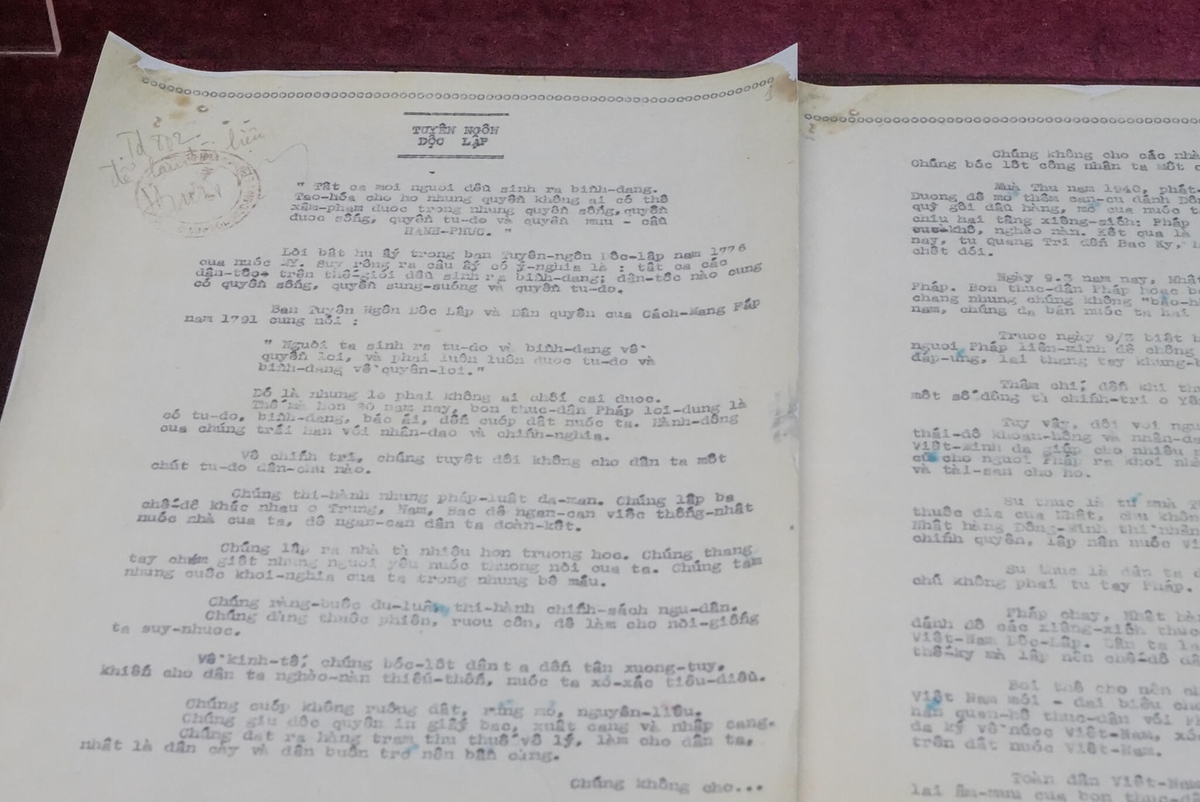 Td 802
TUYÊN NGÔN
DỘC LẬP
" Tât ca moi nguoi dêu sinh ra binh-dang.
Tao-hóa cho ho nhung quyên không ai có thê
xâm-pham duoc trong nhung quyên sông, quyên
duoc sông, quyên tu-do và quyên muu - câu
HANH-PHUC. "
Lòi bât hu ây trong ban Tuyên-ngôn Dôc-lâp nam 1776
cua nuóc Mỹ. Suy rông ra câu ây có ý-nghia là : tât ca các
dân-tôc trên thê-giói dêu sinh ra binh-dang; dân-tôc nào cung
có quyên sông, quyên sung-suóng và quyên tu-do.
Ban Tuyên Ngôn Dôc Lâp và Dân quyên cua Cách-Mang Páp
nam 1791 cung nói :
" Nguòi ta sinh ra tu-do và binh-dang vê
quyên loi, và phai luôn luôn duoc tu-do và
binh-dang vê quyên-loi."
Dó là nhung le phai không ai chôi cai duoc.
Thê mà hon 80 nam nay, bon thuc-dân Pháp loi-dung lá
cò tu-do, binh-dang, bác ái, dên cuóp dât nuóc ta. Hành-dông
cua chúng trái han vói nhân-dao và chính-nghia.
Vê chính tri, chúng tuyêt dôi không cho dân ta môt
chút tu-do dân-chu nào.
Chúng thi-hành nhung pháp-luât da-man. Chúng lâp ba
chê-dô khác nhau o Trung, Nam, Bac dê ngan-can viêc thông-nhât
nuóc nhà cua ta, dê ngan-can dân ta doàn-kêt.
Chúng lâp ra nhà tù nhiêu hon truong hoc. Chúng thang
tay chém giêt nhung nguoi yêu nuóc thuong nòi cua ta. Chúng tam
nhung cuôc khoi-nghia cua ta trong nhung bê máu.
Chúng ràng-buôc du-luân, thi-hành chính-sách ngu-dân.
Chúng dùng thuôc phiên, ruou côn, dê làm cho nòi-giông
ta suy-nhuoc.
Vê kinh-tê, chúng bóc-lôt dân ta dên tân xuong-tuy,
khiên cho dân ta nghèo-nàn thiêu-thôn, nuóc ta xó-xác tiêu-diêu.
Chúng cuóp không ruông dât, rùng mỏ, nguyên-liêu.
Chúng giu dôc quyên in giây bac, xuât cang và nhâp cang.
Chúng dat ra hàng tram thu thuê vô lý, làm cho dân ta,
nhât là dân cày và dân buôn tro nên bân cùng.
Chúng không cho...
Chúng không cho các nhà
Chúng bóc lôt công nhân ta môt c
Mùa Thu nam 1940, phát
Duong dê mo thêm can-cu dánh Dô
quỳ gôi dâu hàng, mo cua nuóc t
chiu hai tâng xiêng-xich: Pháp
cuc-khô, nghèo nàn. Kêt qua là
nay, tu quang Tri dên Bac Ky,
chêt dói.
Ngày 9.3 nam nay, Nhât
Pháp. Bon thuc-dân Pháp hoac b
chang nhung chúng không "bao-h
nam, chúng da bán nuóc ta hai
Truoc ngày 9/3 biêt b
nguoi Pháp liên-minh dê chông
dáp-ung, lai thang tay khung-b
Thâm chí, dên khi th
môt sô dông tù chính-tri o Yê
Tuy vây, dôi vói ngu
thái-dô khoan-hông và nhân-d
Viêt-Minh da giúp cho nhiêu
cúu cho nguoi Pháp ra khoi nh
và tài-san cho ho.
Su thuc là tù mùa
thuôc dia cua Nhât, chu không
Nhât hàng Dông-Minh thì nhân
chính quyên, lâp nên nuóc Vi
Su thuc là dân ta
chú không phai tu tay Pháp.
Pháp chay, Nhât hàn
dánh dô các xiêng-xich thuc
Viêt-Nam Dôc-Lâp. Dân ta la
thê-ky mà lâp nên chê-dô d
Boi thê cho nên
Viêt Nam mói - dai biêu ch
han quan-hê thuc-dân vói
da ký vê nuóc Viêt-Nam, xó
trên dât nuóc Viêt-Nam.
Toàn dân Viêt-Nam
lai âm-muu cua bon thuc-d